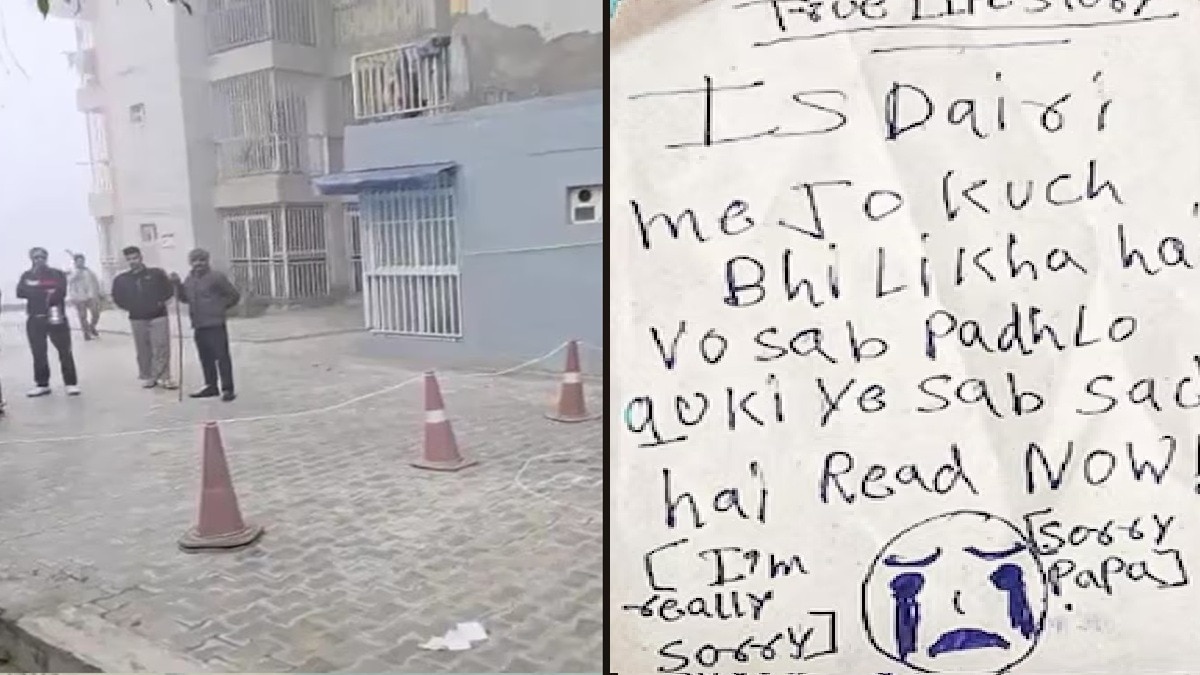 True Life Story
Is Dairi
me Jo kuch
Bhi Likha ha
Vo sab Padh Lo
quki Ye sab sac
hai Read NOW!
[I'm
really
sorry]
[sorry
PaPa]